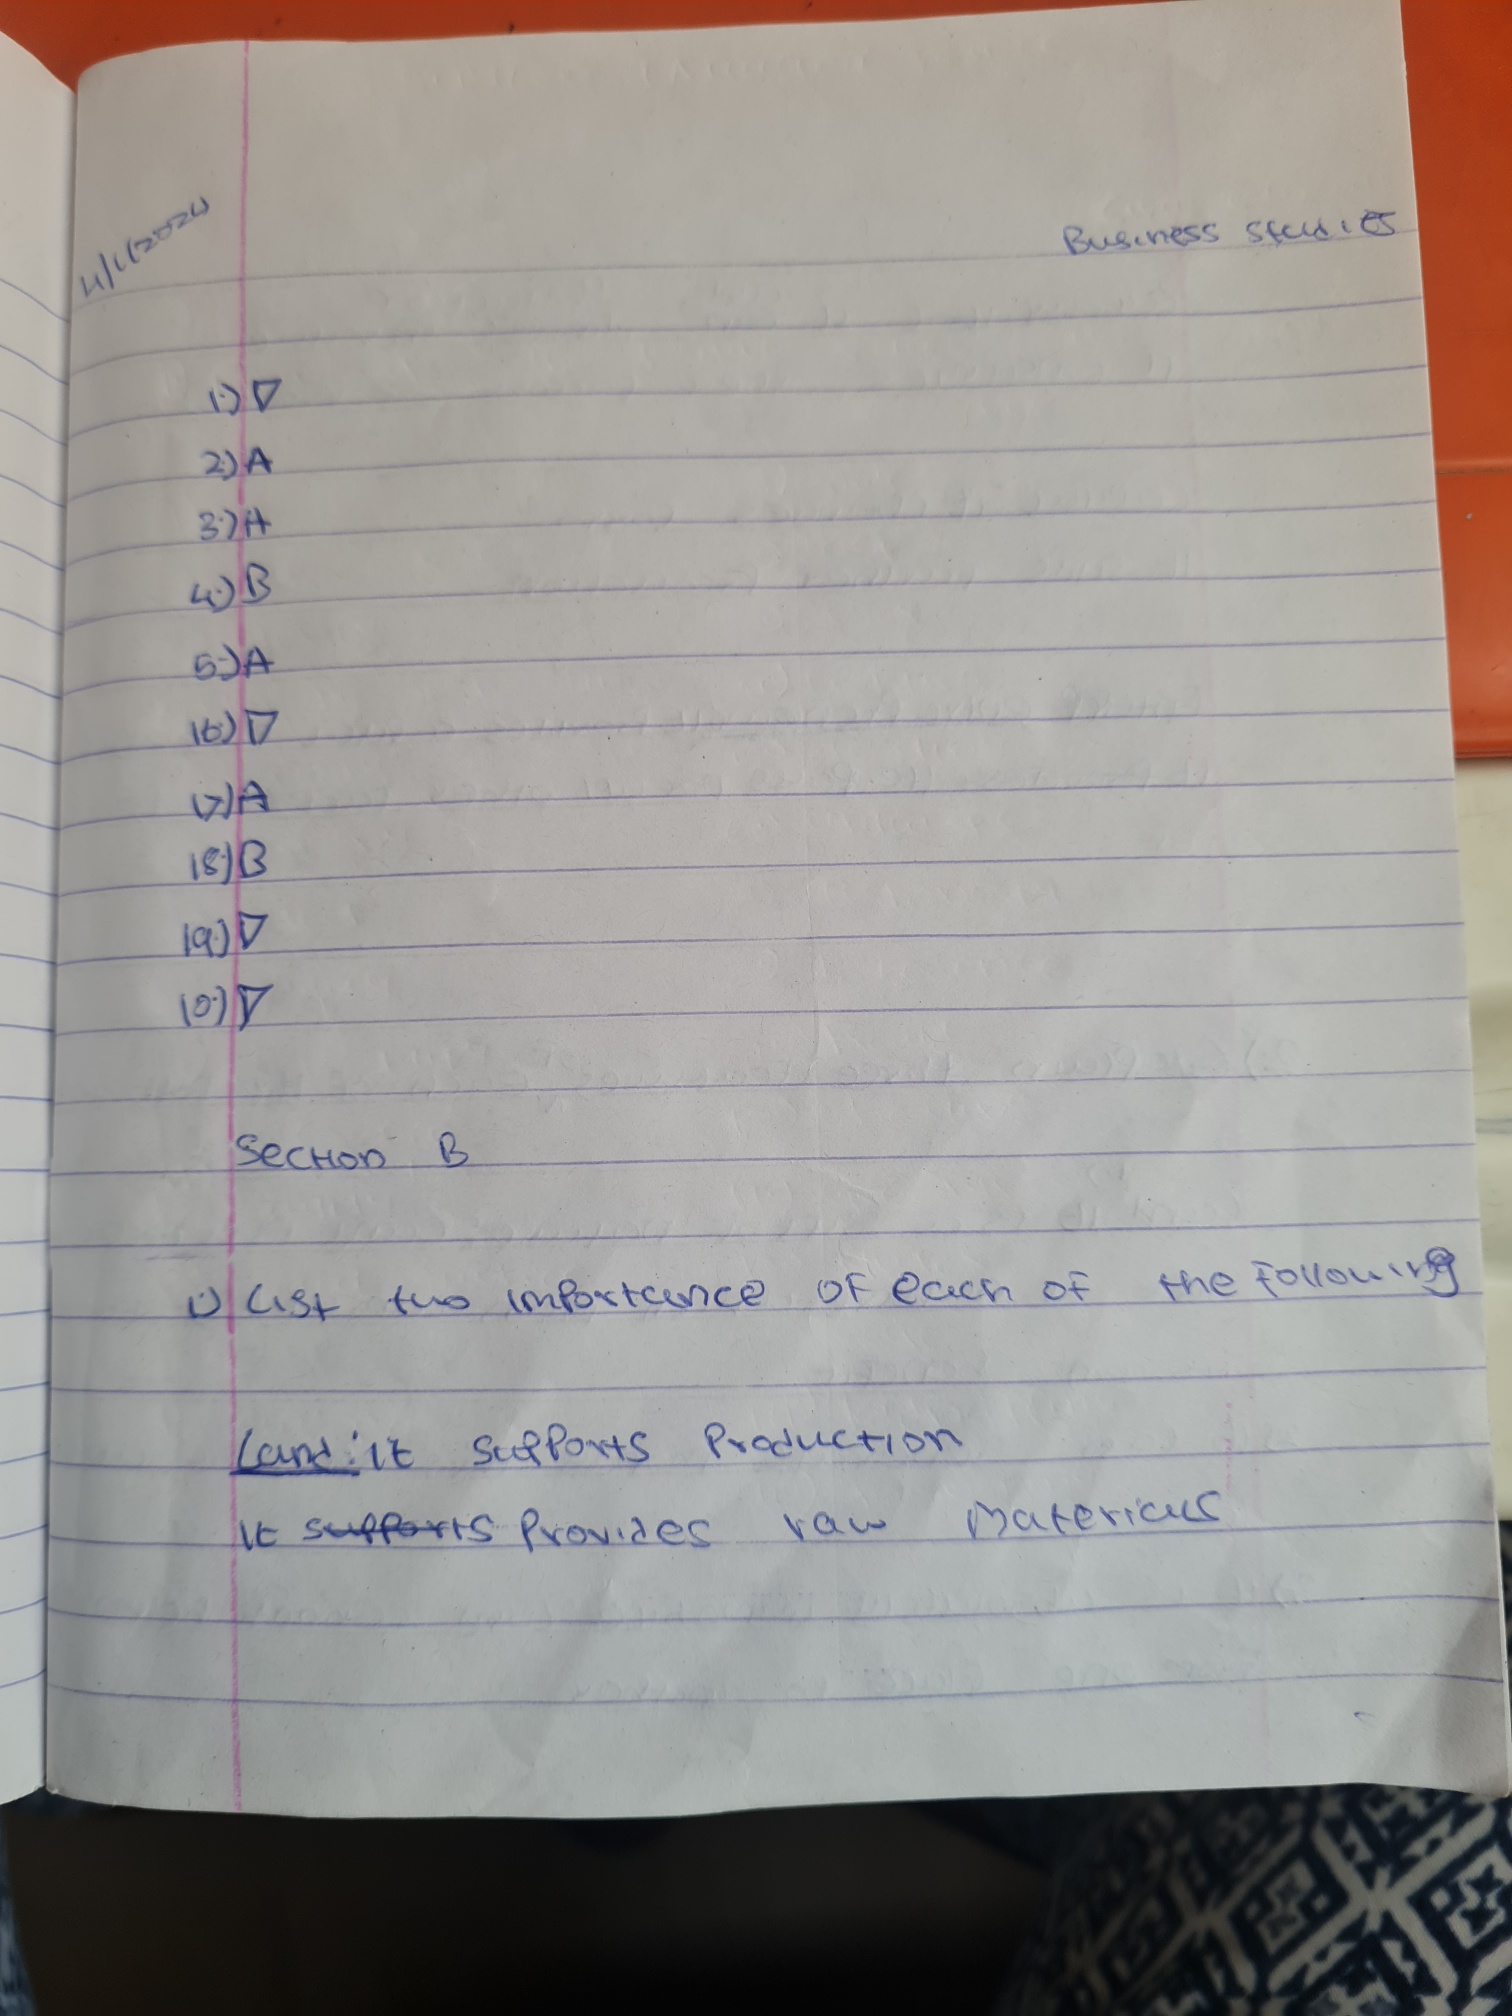 4/1/2024
Business studies
1.) D
2.) A
3.) A
4.) B
5.) A
16.) D
17.) A
18.) B
19.) D
10.) D
Section B
1.) List two importance of each of the following
Land: it supports Production
it supports Provides raw Materials